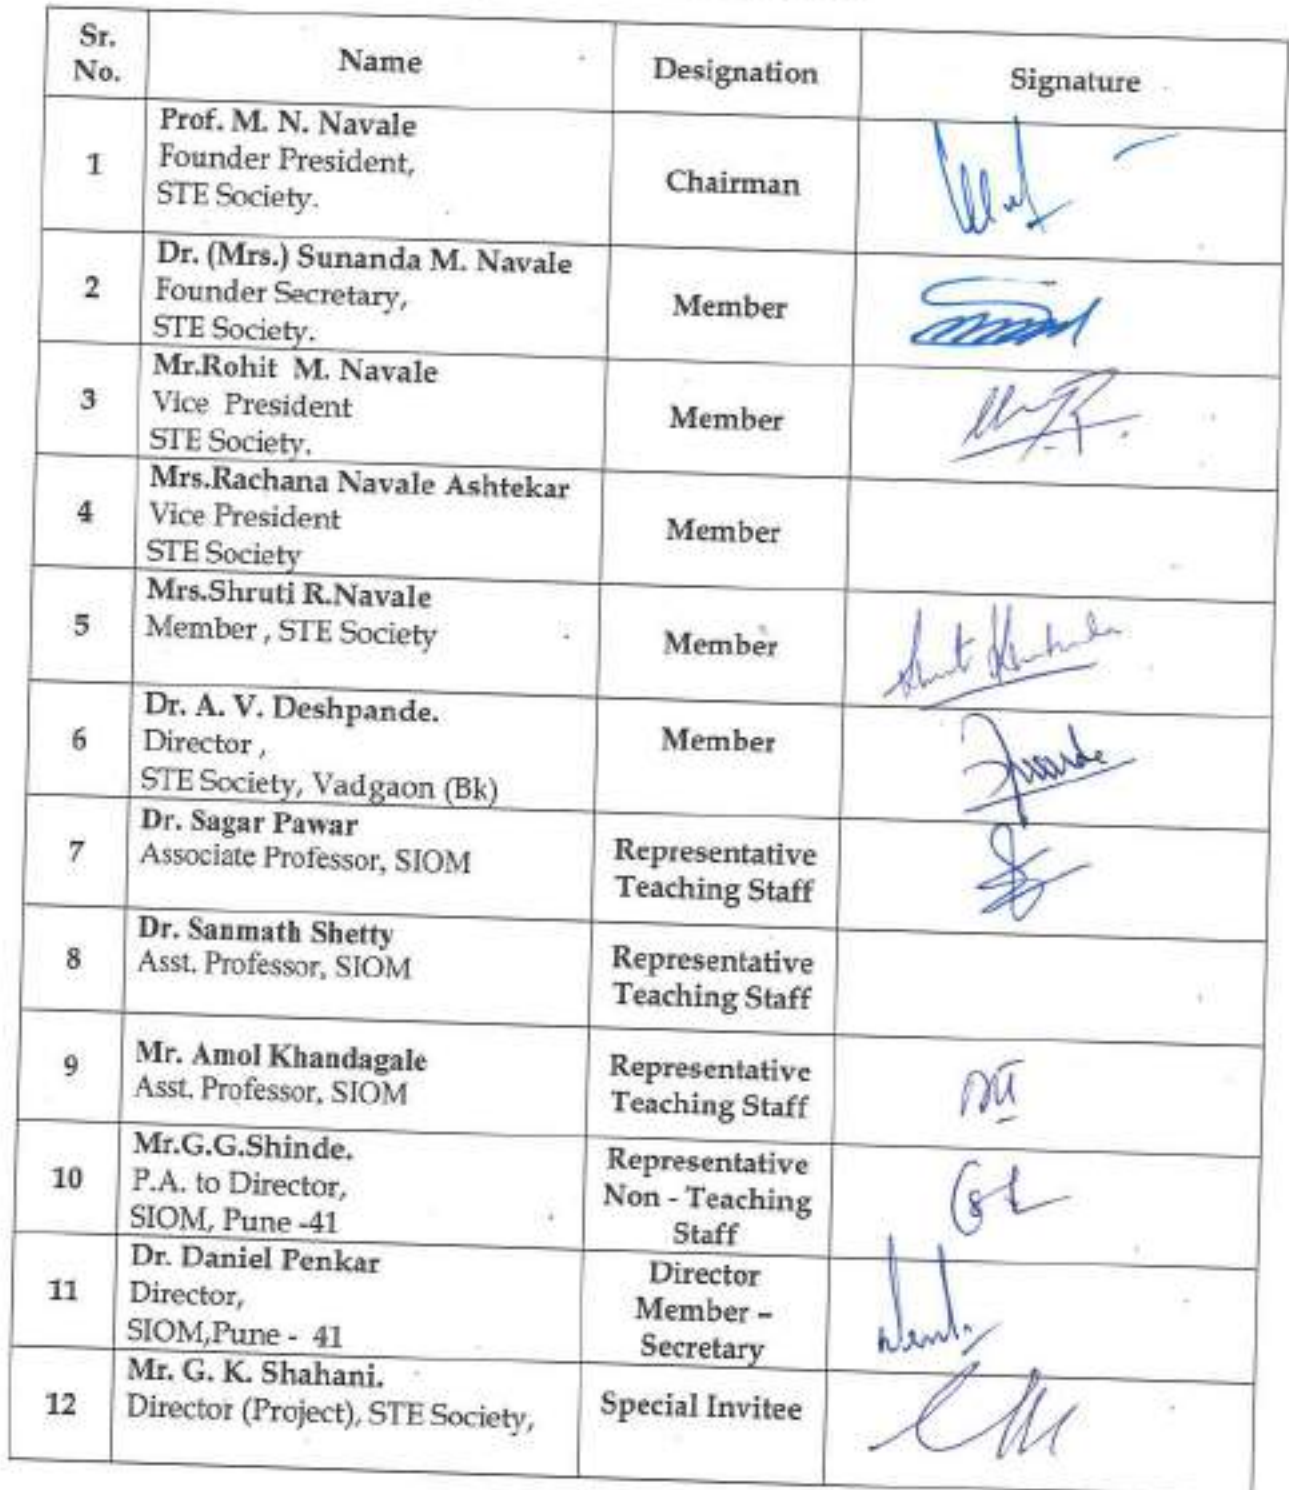 Sr. No. Name Designation Signature
1 Prof. M. N. Navale
Founder President,
STE Society.
Chairman
2 Dr. (Mrs.) Sunanda M. Navale
Founder Secretary,
STE Society.
Member
3 Mr.Rohit M. Navale
Vice President
STE Society.
Member
4 Mrs.Rachana Navale Ashtekar
Vice President
STE Society
Member
5 Mrs.Shruti R.Navale
Member , STE Society
Member
6 Dr. A. V. Deshpande.
Director ,
STE Society, Vadgaon (Bk)
Member
7 Dr. Sagar Pawar
Associate Professor, SIOM
Representative
Teaching Staff
8 Dr. Sanmath Shetty
Asst. Professor, SIOM
Representative
Teaching Staff
9 Mr. Amol Khandagale
Asst. Professor, SIOM
Representative
Teaching Staff
10 Mr.G.G.Shinde.
P.A. to Director,
SIOM, Pune -41
Representative
Non - Teaching
Staff
11 Dr. Daniel Penkar
Director,
SIOM,Pune - 41
Director
Member –
Secretary
12 Mr. G. K. Shahani.
Director (Project), STE Society,
Special Invitee